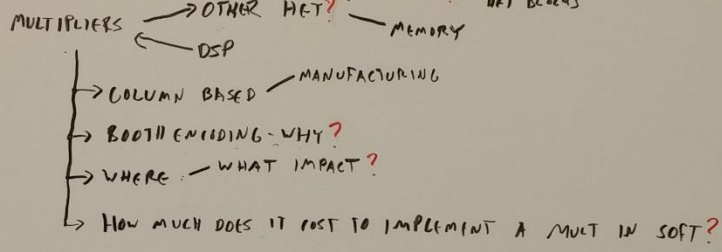 OTHER HET?
MULTIPLIERS
MEMORY
DSP
COLUMN BASED
MANUFACTURING
BOOTH ENCODING - WHY?
WHERE - WHAT IMPACT?
HOW MUCH DOES IT COST TO IMPLEMENT A MULT IN SOFT?